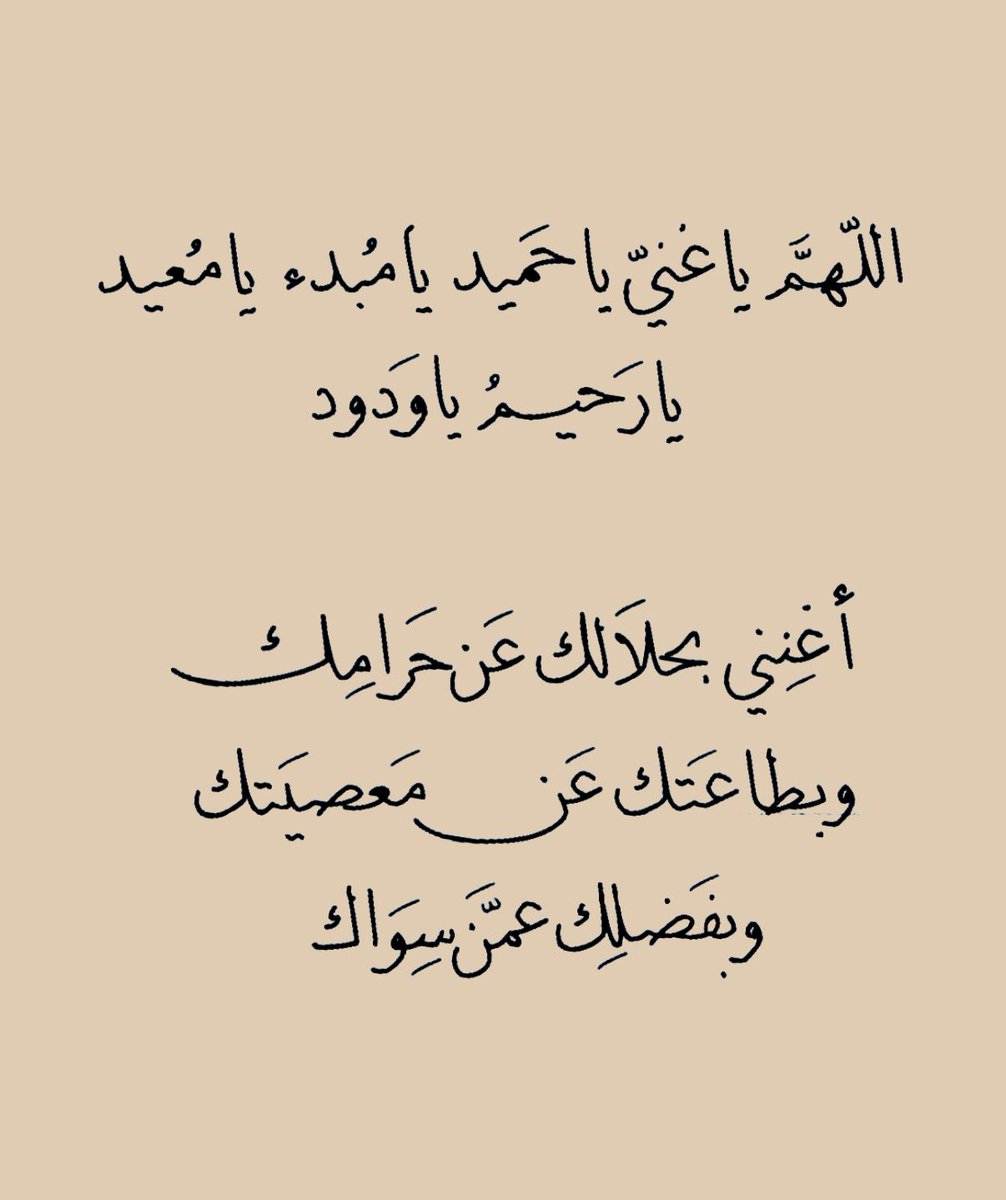 اللّهمَّ يا غنيّ يا حَميد يا مُبدء يا مُعيد
يا رَحيمُ يا وَدود
أغنِني بحلاَلك عَن حَرامِك
وبطاعَتك عَن مَعصيَتك
وبفَضلِك عمَّن سِوَاك